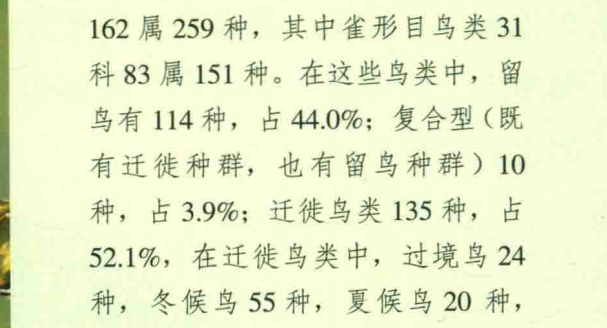 162 属 259 种，其中雀形目鸟类 31
科 83 属 151 种。在这些鸟类中，留
鸟有 114 种，占 44.0%；复合型（既
有迁徙种群，也有留鸟种群）10
种，占 3.9%；迁徙鸟类 135 种，占
52.1%，在迁徙鸟类中，过境鸟 24
种，冬候鸟 55 种，夏候鸟 20 种，